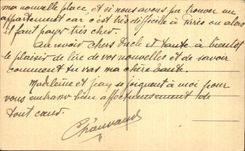 ma nouvelle place et si nous avons pu trouver un
appartement car c'est très difficile à
il faut payer très cher.
Au revoir chers Oncle et Tante à bientôt
le plaisir de lire de vos nouvelles et de savoir
comment tu vas ma chère tante.
Madeleine et se joignent à moi pour
vous embrasser bien affectueusement de
tout cœur.